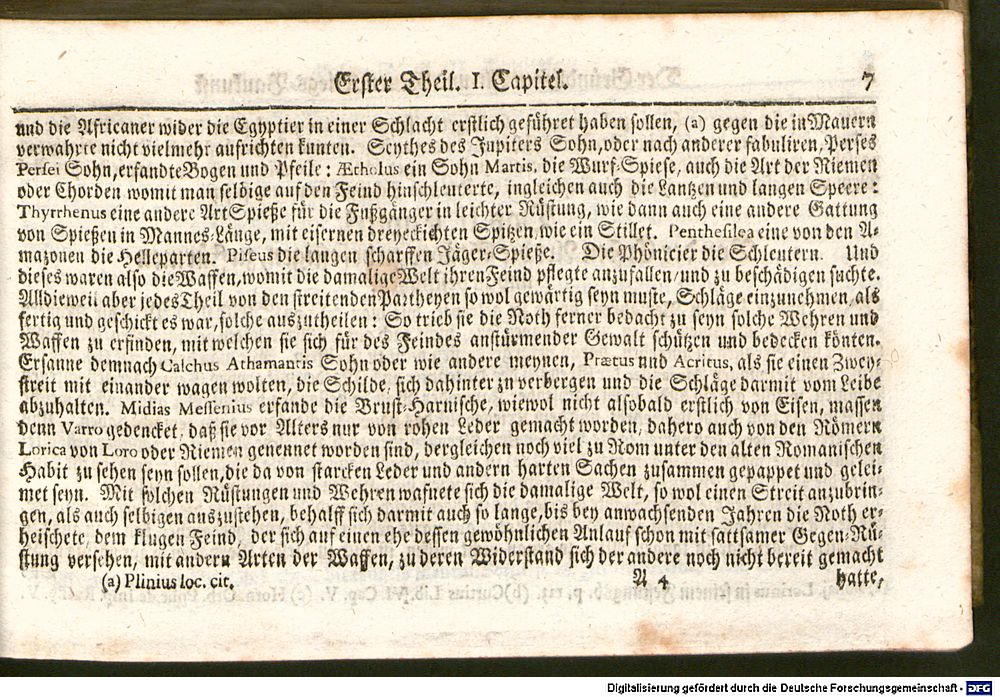 Erster Theil. I. Capitel. 7
und die Africaner wider die Egyptier in einer Schlacht erstlich geführet haben sollen, (a) gegen die in Mauern
verwahrte nicht vielmehr aufrichten kunten. Scythes des Jupiters Sohn, oder nach anderer fabuliren, Perses
Persei Sohn, erfandte Bogen und Pfeile: Ætholus ein Sohn Martis, die Wurf-Spiese, auch die Art der Riemen
oder Chorden womit man selbige auf den Feind hinschleuterte, ingleichen auch die Lantzen und langen Speere:
Thyrrhenus eine andere Art Spieße für die Fußgänger in leichter Rüstung, wie dann auch eine andere Gattung
von Spießen in Mannes-Länge, mit eisernen dreyeckichten Spitzen, wie ein Stillet. Penthesilea eine von den A-
mazonen die Helleparten. Piseus die langen scharffen Jäger-Spieße. Die Phönicier die Schleutern. Und
dieses waren also die Waffen, womit die damalige Welt ihren Feind pflegte anzufallen, und zu beschädigen suchte.
Alldieweil aber jedes Theil von den streitenden Partheyen so wol gewärtig seyn muste, Schläge einzunehmen, als
fertig und geschickt es war, solche auszutheilen: So trieb sie die Noth ferner bedacht zu seyn solche Wehren und
Waffen zu erfinden, mit welchen sie sich für des Feindes anstürmender Gewalt schützen und bedecken könten.
Ersanne demnach Calchus Athamantis Sohn oder wie andere meynen, Prætus und Acritus, als sie einen Zwey-
streit mit einander wagen wolten, die Schilde, sich dahinter zu verbergen und die Schläge darmit vom Leibe
abzuhalten. Midias Messenius erfande die Brust-Harnische, wiewol nicht alsobald erstlich von Eisen, massen
denn Varro gedencket, daß sie vor Alters nur von rohen Leder gemacht worden, dahero auch von den Römern
Lorica von Loro oder Riemen genennet worden sind, dergleichen noch viel zu Rom unter den alten Romanischen
Habit zu sehen seyn sollen, die da von starcken Leder und andern harten Sachen zusammen gepappet und gelei-
met seyn. Mit solchen Rüstungen und Wehren wafnete sich die damalige Welt, so wol einen Streit anzubrin-
gen, als auch selbigen auszustehen, behalff sich darmit auch so lange, bis bey anwachsenden Jahren die Noth er-
heischete, dem klugen Feind, der sich auf einen ehe dessen gewöhnlichen Anlauf schon mit sattsamer Gegen-Rü-
stung versehen, mit andern Arten der Waffen, zu deren Widerstand sich der andere noch nicht bereit gemacht
(a) Plinius loc. cit. A 4 hatte,
Digitalisierung gefördert durch die Deutsche Forschungsgemeinschaft - DFG